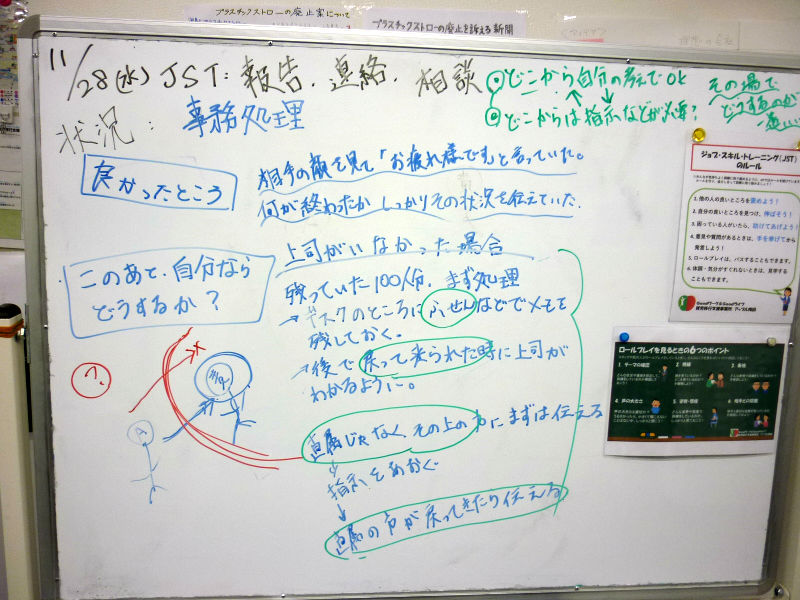 プラスチックストローの廃止案について
プラスチックストローの廃止を訴える新聞
11/28(水) JST: 報告.連絡.相談
どこから自分の考えでOK
どこからは指示などが必要?
その場で
どうするのが
状況: 事務処理
良かったところ
相手の顔を見て「お疲れ様です」と言っていた。
何が終わったか しっかりその状況を伝えていた.
このあと、自分なら
どうするか?
上司がいなかった場合
残っていた100人分.まず処理
→デスクのところにふせんなどでメモを
残しておく。
→後で戻って来られた時に上司が
わかるように。
直属じゃなく、その上の方にまずは伝える
↓
指示をあおぐ
↓
直属の方が戻ってきたり伝える
ジョブ・スキル・トレーニング(JST)
のルール
1.他の人の良いところを褒めよう!
2.自分の良いところを見つけ、伸ばそう!
3.困っている人がいたら、助けてあげよう!
4.意見や質問があるときは、手を挙げてから
発言しよう!
5.ロールプレイは、パスすることもできます。
6.体調・気分がすぐれないときは、見学する
こともできます。
ロールプレイを見るときの6つのポイント
1.テーマの確認
2.視線
3.表情
4.声の大きさ
5.姿勢・態度
6.相手との距離